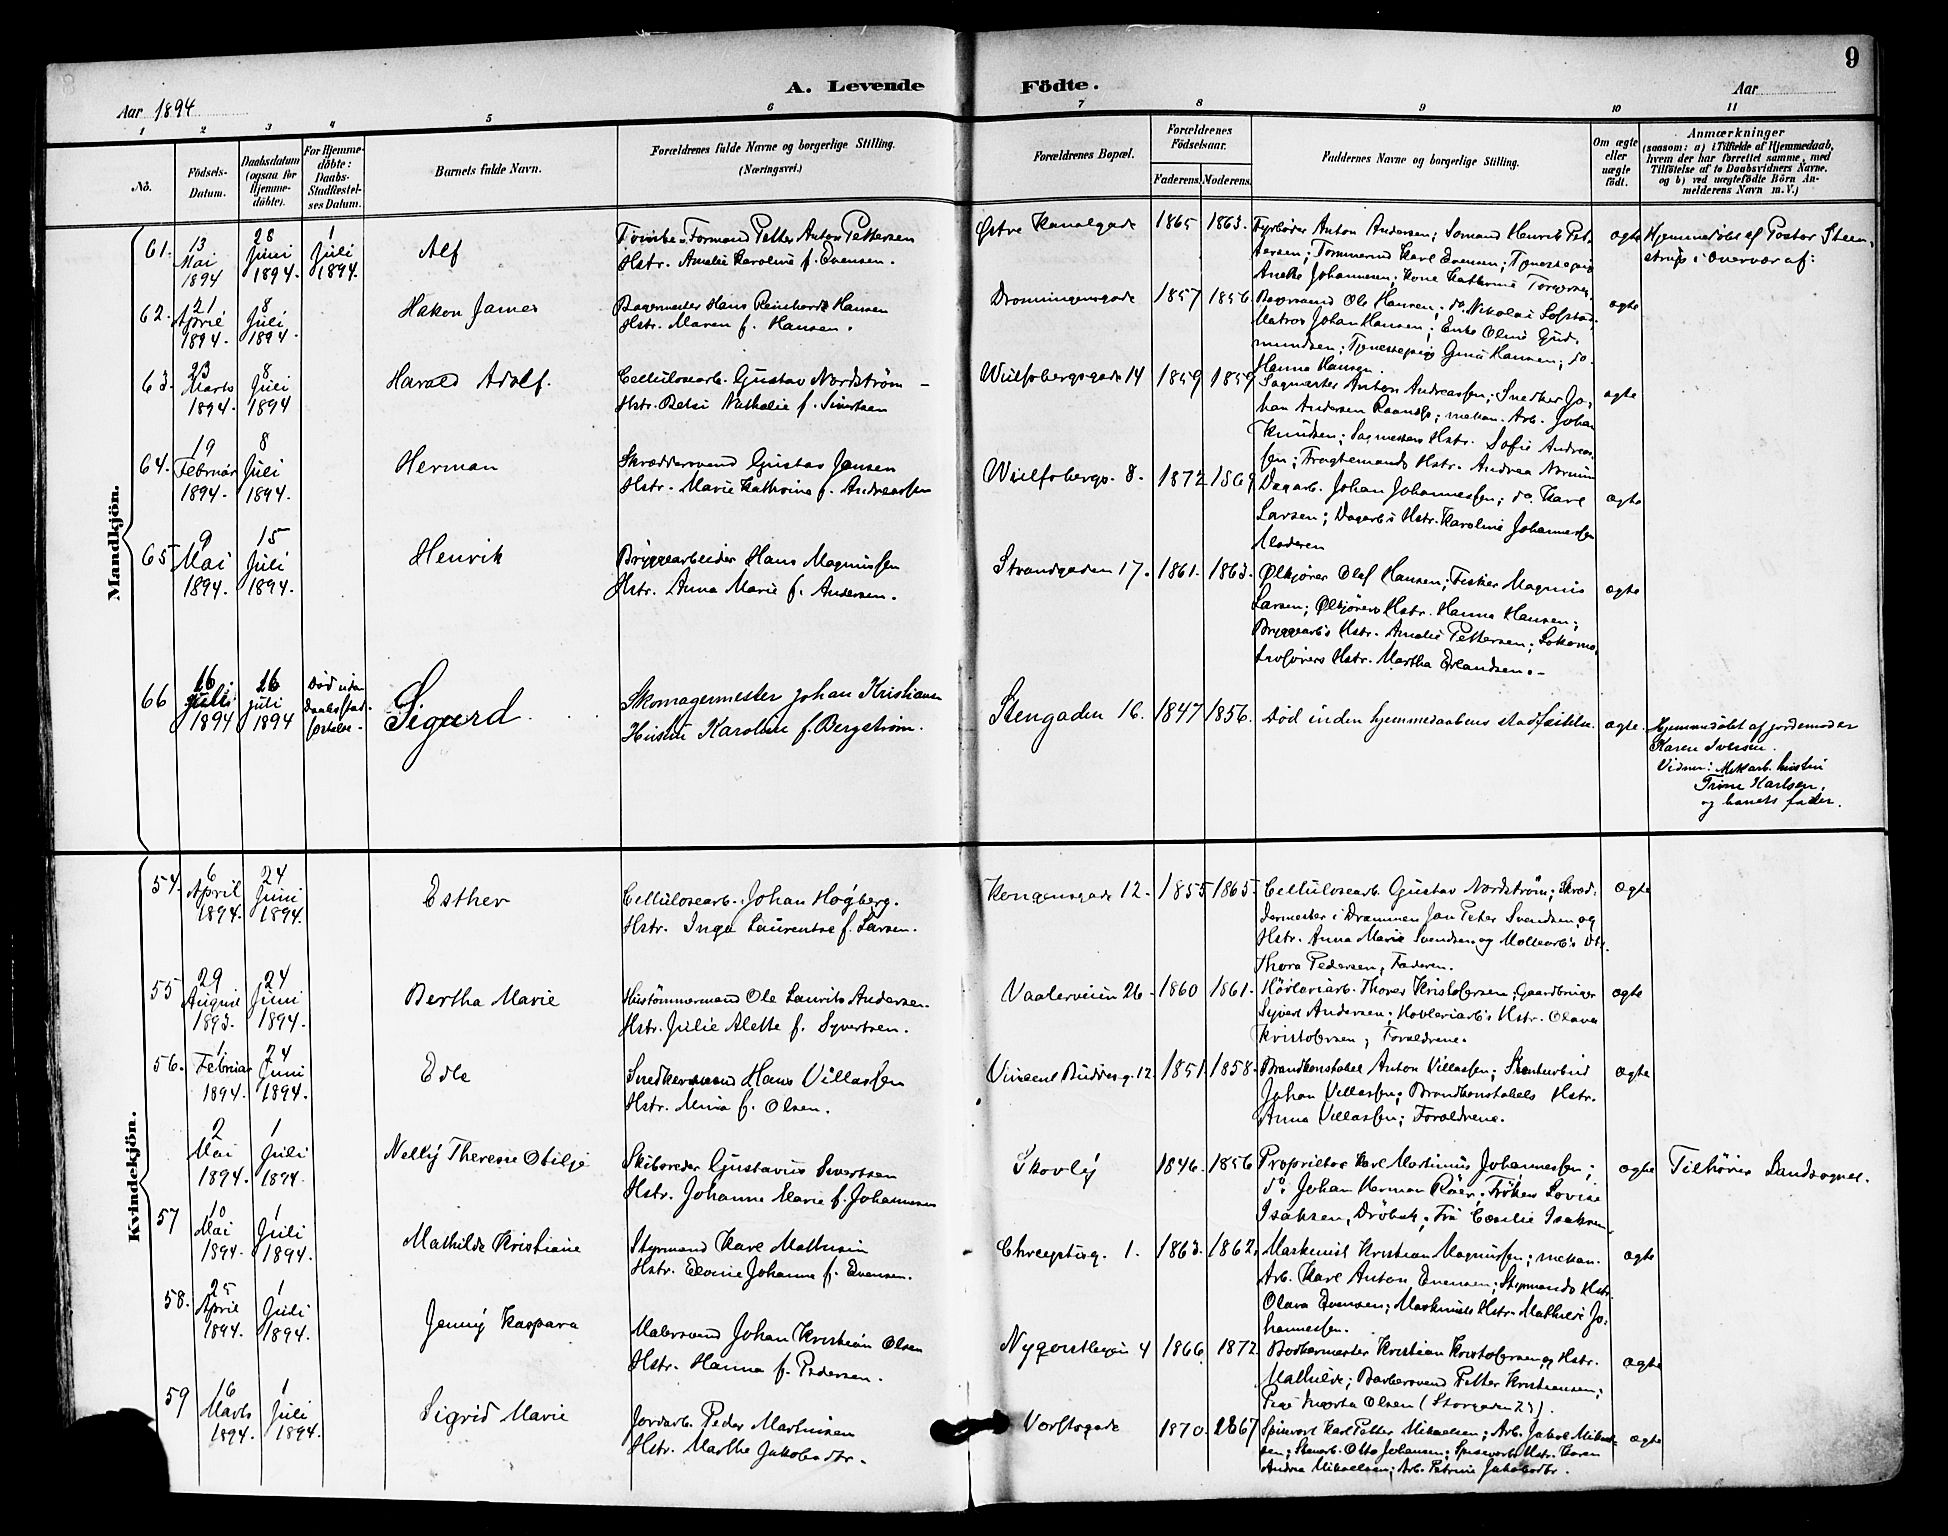 9
A. Levende Födte.
Aar 1894
Aar
1 2 3 4 5 6 7 8 9 10 11
No.
Födsels-
Datum.
Daabsdatum
(ogsaa for
Hjemme-
döbte).
For Hjemme-
döbte:
Daabs-
Stadfæstel-
ses Datum.
Barnets fulde Navn.
Forældrenes fulde Navne og borgerlige Stilling.
(Næringsvei.)
Forældrenes Bopæl.
Forældrenes
Födselsaar.
Faderens. Moderens.
Faddernes Navne og borgerlige Stilling.
Om ægte
eller
uægte
födt.
Anmærkninger
(saasom: a) i Tilfælde af Hjemmedaab,
hvem der har forrettet samme, med
Tilföielse af to Daabsvidners Navne.
og b) ved uægtefödte Börn An-
melderens Navn m. V.)
Mandkjön.
61. 13 Mai 1894
28 Juni 1894.
1 Juli 1894.
Alf
Formand Petter Anton Pettersen
Hstr. Amalie Karoline f. Evensen.
Østre Kanalgade 1865 1863.
Fyrbøder Anton Andersen; Sømand Henrik Pet-
tersen; Tømmermd Karl Evensen; Tjenestepig
Anette Johannesen; Kone Kathrine Torgersen.
ægte
Hjemmedøbt af Pastor Steen-
strup i Overvær af:
62. 21 April 1894.
8 Juli 1894.
Hakon James
Bagermester Hans Reinhardt Hansen
Hstr. Maren f. Hansen.
Dronningensgade 1857 1856.
Bagersvend Ole Hansen; do. Nikolai
Matros Johan Hansen; Enke Oline Gud-
mundsen; Tjenestepige Gina Hansen; do.
Hanna Hansen.
ægte
63. 23 Marts 1894.
8 Juli 1894
Harald Adolf.
Cellulosearb. Gustav Nordström
Hstr. Betsi Nathalie f. Sivertsen
Wulfsbergsgade 14 1859 1859
Sagmester Anton Andreassen; Snedker Jo-
han Andersen; mekan. Arb. Johan
Knudsen; Sagmesters Hstr. Sofie Andreas-
sen; Fragtemands Hstr. Andrea
ægte
64. 19 Februar 1894.
8 Juli 1894.
Herman
Skræddersvend Gustav Jansen
Hstr. Marie Kathrine f. Andreassen
Wulfsbergs. 8. 1872 1869
Dagarb. Johan Johannessen; do. Karl
Larsen; Dagarb's Hstr. Karoline Johannessen
Moderen
ægte
65 9 Mai 1894.
15 Juli 1894.
Henrik
Bryggearbeider Hans Magnussen
Hstr. Anna Marie f. Andersen.
Strandgaden 17. 1861. 1863.
Ølkjører Olaf Hansen; Fisker Magnus
Larsen; Ølkjørers Hstr. Hanna Hansen;
Bryggearb's Hstr. Amalie Pettersen; Lokomo-
tivførers Hstr. Martha Erlandsen.
ægte
66 16 Juli 1894
16 juli 1894
Død uden
Daabsstad-
fæstelse.
Sigurd
Skomagermester Johan Kristiansen
Hustru Karoline f. Bergström.
Stengaden 16. 1847 1856.
Død inden hjemmedaabens stadfæstelse.
ægte.
Hjemmedøbt af jordemoder
Karen Iversen.
Vidner: Mek arb. hustru
Trine Karlsen,
og barnets fader.
Kvindekjön.
54. 6 April 1894.
24 Juni 1894.
Esther
Cellulosearb. Johan Høgberg.
Hstr. Inga Laurentse f. Larsen.
Kongensgade 12. 1855 1865.
Cellulosearb. Gustav Nordström; Skræd-
dermester i Drammen Jan Peter Svendsen og
Hstr. Anna Marie Svendsen og Møllearb's
Thora Pedersen, Faderen.
ægte
55 29 August 1893.
24 Juni 1894.
Bertha Marie
Hustømmermand Ole Laurits Andersen.
Hstr. Julie Alette f. Syvertsen.
Vaalerveien 26 1860 1861.
Høvleriarb. Thorvs Kristofersen; Gaardbruger
Syvert Andersen; Høvleriarb's Hstr. Olava
Kristofersen; Forældrene.
ægte
56. 1 Februar 1894.
24 Juni 1894.
Edle
Snedkersvend Hans Villassen
Hstr. Mina f. Olsen.
Vincent Buddes g. 12 1851 1858.
Brandkonstabel Anton Villassen; Kontorbud
Johan Villassen; Brandkonstabels Hstr.
Anna Villassen; Forældrene.
ægte
2 Mai 1894.
1 Juli 1894.
Nelly Therese Otilje
Skibsreder Gustavus Sivertsen
Hstr. Johanne Marie f. Johannesen
Skovly 1846. 1856
Proprietær Karl Martinius Johannessen;
do. Johan Herman Röer; Frøken Lovise
Isaksen, Drøbak; Fru Cæcilie Isaksen
ægte
Tilhører Landsognet.
57 10 Mai 1894.
1 Juli 1894.
Mathilde Kristiane
Styrmand Karl Mathisen
Hstr. Elvine Johanne f. Evensen.
1. 1863. 1862.
Maskinist Kristian Magnussen; mekan.
Arb. Karl Anton Evensen; Styrmands Hstr.
Olava Evensen; Maskinists Hstr. Mathilde Jo-
hannessen.
ægte
58. 25 April 1894.
1 Juli 1894.
Jenny Kaspara
Malersvend Johan Kristian Olsen
Hstr. Hanna f. Pedersen.
Nygaardsgaden 4 1866 1872.
Bødkermester Kristian Kristofersen og Hstr.
Mathilde; Barbersvend Petter Kristiansen;
Pige Marta Olsen (Storgaden 27).
ægte
59 16 Marts 1894.
1 Juli 1894.
Sigrid Marie
Jordarb. Peder Martinsen
Hstr. Marthe Jakobsdtr.
Værftsgade 1870. 1867
Karl Petter Mikaelsen; Arb. Jakob Mikael-
sen; Otto Johansen; Hstr. Karen
Andrea Mikaelsen; Arb. Petrine Jakobsdtr.
ægte